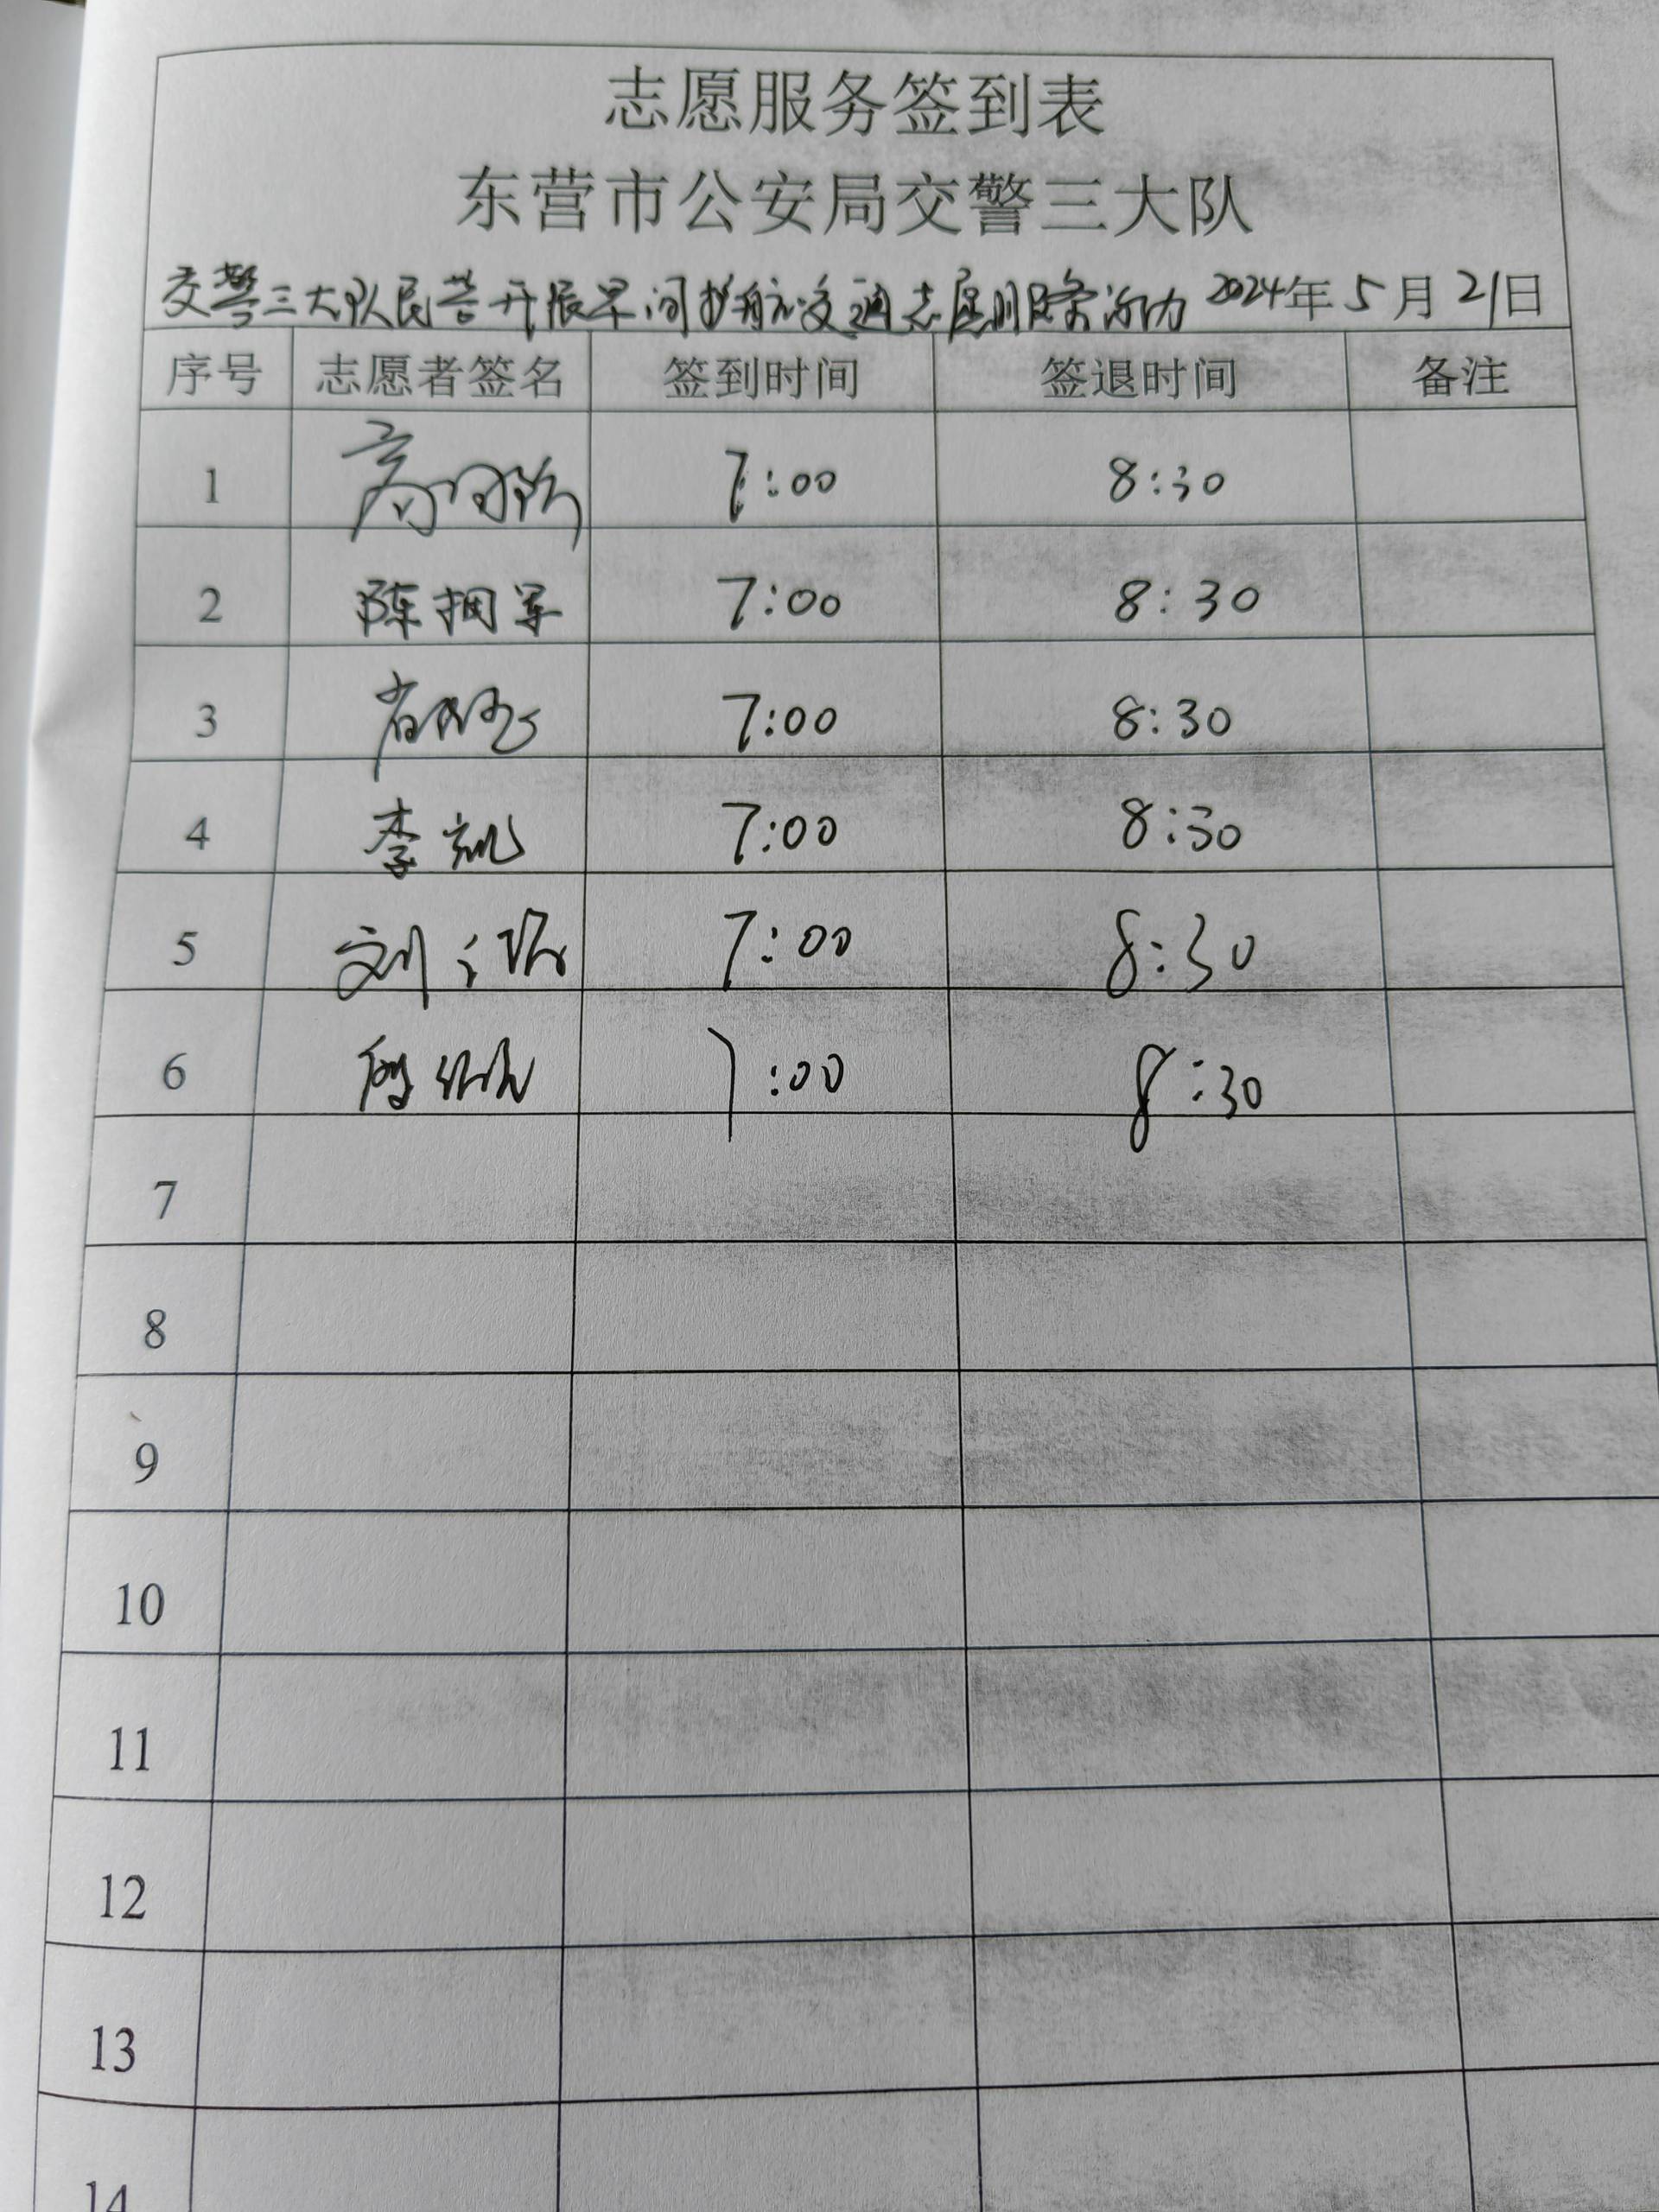 志愿服务签到表
东营市公安局交警三大队
交警三大队民警开展早间护航交通志愿服务活动 2024年5月21日
序号 志愿者签名 签到时间 签退时间 备注
1 7:00 8:30
2 陈拥军 7:00 8:30
3 7:00 8:30
4 李 7:00 8:30
5 刘 7:00 8:30
6 7:00 8:30
7
8
9
10
11
12
13
14